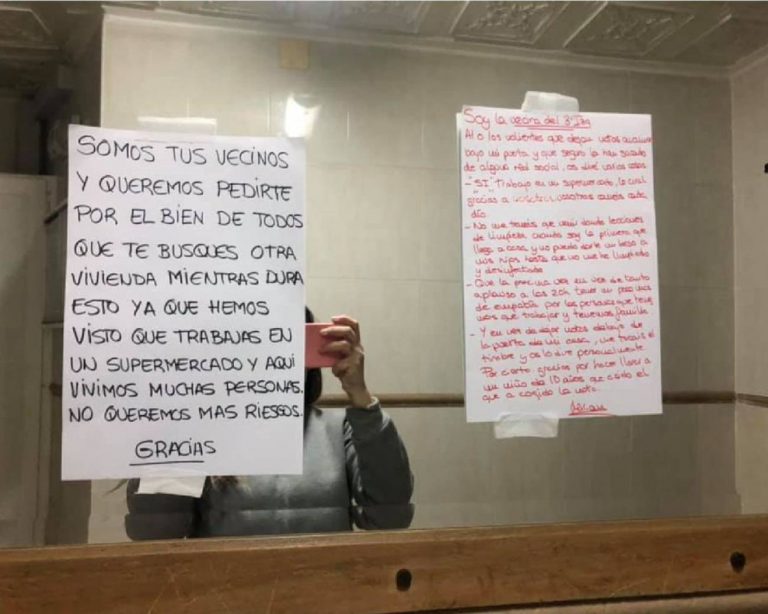 SOMOS TUS VECINOS
Y QUEREMOS PEDIRTE
POR EL BIEN DE TODOS
QUE TE BUSQUES OTRA
VIVIENDA MIENTRAS DURA
ESTO YA QUE HEMOS
VISTO QUE TRABAJAS EN
UN SUPERMERCADO Y AQUI
VIVIMOS MUCHAS PERSONAS.
NO QUEREMOS MAS RIESGOS.
GRACIAS
Soy la vecina del 3º
Al o los valientes que dejan notas
bajo mi puerta y que seguro la han sacado
de alguna red social, os diré varias cosas
- "SI" Trabajo en un supermercado, lo cual
gracias a nosotros vosotros coméis cada
día
- No me tenéis que venir dando lecciones
de limpieza cuando soy la primera que
llega a casa y no puedo darle un beso a
mis hijos hasta que no me he limpiado
y desinfectado
- Que la próxima vez en vez de tanto
aplauso a las 20h tener un poco mas
de empatía por las personas que tene
mos que trabajar y tenemos familia
- Y en vez de dejar notas debajo de
la puerta de mi casa, me tocais el
timbre y os lo dire personalmente
Por cierto gracias por hacer llorar a
un niño de 10 años que ha sido el
que a cogido la nota.